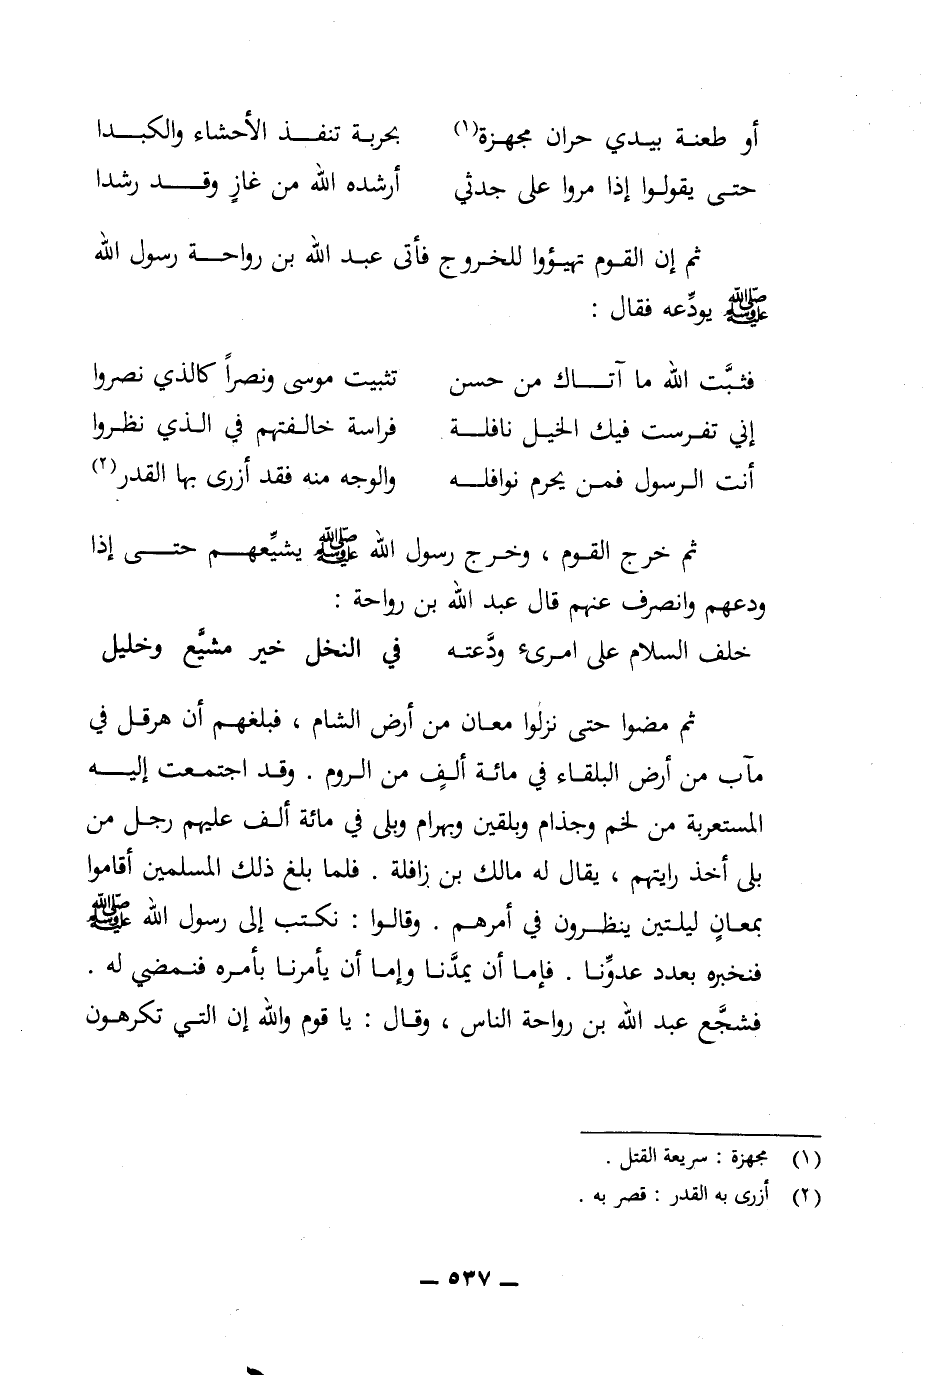 أو طعنة بيدي حران مجهزة(١) بحربة تنفذ الأحشاء والكبدا
حتى يقولوا إذا مروا على جدثي أرشده الله من غازٍ وقد رشدا
ثم إن القوم تهيؤوا للخروج فأتى عبد الله بن رواحة رسول الله
ﷺ يودِّعه فقال :
فثبَّت الله ما آتاك من حسن تثبيت موسى ونصراً كالذي نصروا
إني تفرست فيك الخيل نافلة فراسة خالفتهم في الذي نظروا
أنت الرسول فمن يحرم نوافله والوجه منه فقد أزرى بها القدر(٢)
ثم خرج القوم ، وخرج رسول الله ﷺ يشيِّعهم حتى إذا
ودعهم وانصرف عنهم قال عبد الله بن رواحة :
خلف السلام على امرىء ودَّعته في النخل خير مشيَّع وخليل
ثم مضوا حتى نزلُوا معان من أرض الشام ، فبلغهم أن هرقل في
مآب من أرض البلقاء في مائة ألفٍ من الروم . وقد اجتمعت إليه
المستعربة من لخم وجذام وبلقين وبهرام وبلى في مائة ألف عليهم رجل من
بلى أخذ رايتهم ، يقال له مالك بن زافلة . فلما بلغ ذلك المسلمين أقاموا
بمعانٍ ليلتين ينظرون في أمرهم . وقالوا : نكتب إلى رسول الله ﷺ
فنخبره بعدد عدوِّنا . فإما أن يمدَّنا وإما أن يأمرنا بأمره فنمضي له .
فشجَّع عبد الله بن رواحة الناس ، وقال : يا قوم والله إن التي تكرهون
(١) مجهزة : سريعة القتل .
(٢) أزرى به القدر : قصر به .
ـ ٥٣٧ ـ